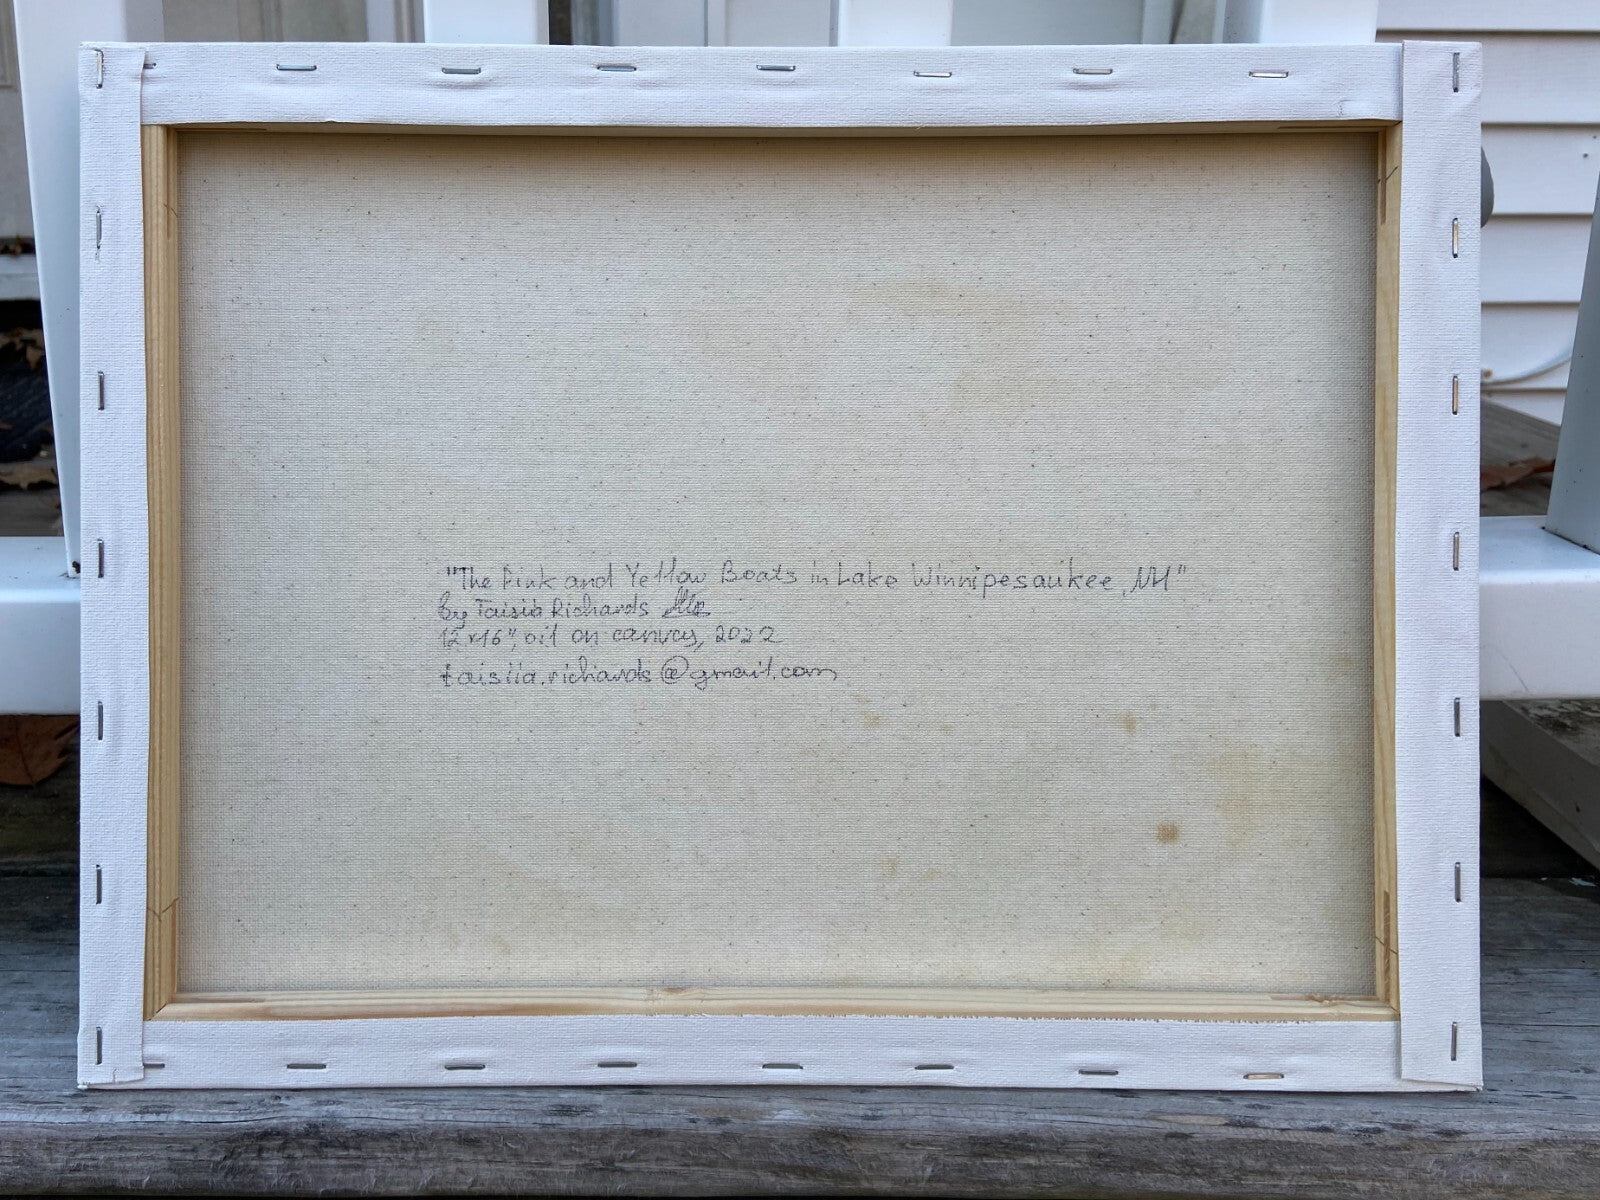 "The Pink and Yellow Boats in Lake Winnipesaukee, NH"
by Taisia Richards
12x16", oil on canvas, 2022
taisiia.richards@gmail.com